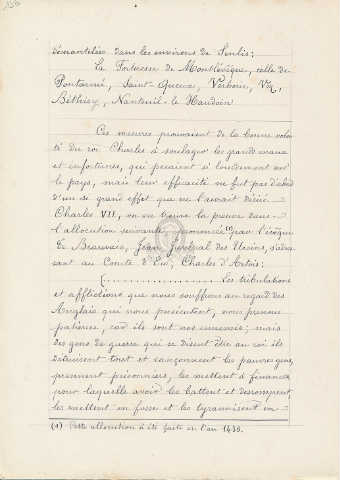 démantelées dans les environs de Senlis;
La Forteresse de Montlévêque, celle de
Pontarmé, Saint-Queux, Verberie, Vez,
Béthisy, Nanteuil-le-Haudoin
Ces mesures prouvaient de la bonne volon
té du roi Charles à soulager les grands maux
et infortunes, qui pesaient si lourdement sur
le pays, mais leur efficacité ne fut pas d'abord
d'un si grand effet que ne l'aurait désiré
Charles VII, on en trouve la preuve dans
l'allocution suivante prononcée (1) Jean l'évêque
de Beauvais, Jean Juvénal des Ursins, s'adres
sant au Comte d'Eu, Charles d'Artois:
(.................. Les tribulations
et afflictions que nous souffrons au regard des
Anglais qui nous persécutent, nous prenons
patience, car ils sont nos ennemis; mais
des gens de guerre qui se disent être au roi ils
détruisent tout et rançonnent les pauvres gens,
prennent prisonniers, les mettent à finances
pour laquelle avoir les battent et desrompent,
les mettent en fosse et les tyrannisent en
(1) Cette allocution a été faite en l'an 1438.